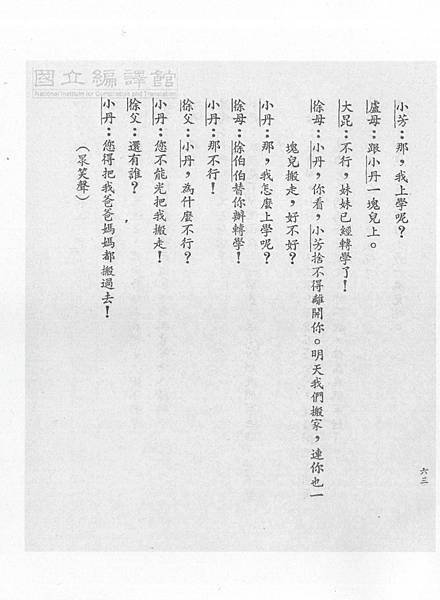 國立編譯館
National Institute for Compilation and Translation
小芳：那，我上學呢？
盧母：跟小丹一塊兒上。
大昆：不行，妹妹已經轉學了！
徐母：小丹，你看，小芳捨不得離開你。明天我們搬家，連你也一
塊兒搬走，好不好？
小丹：那，我怎麼上學呢？
徐母：徐伯伯替你辦轉學！
小丹：那不行！
徐父：小丹，為什麼不行？
小丹：您不能光把我搬走！
徐父：還有誰？
小丹：您得把我爸爸媽媽都搬過去！
（眾笑聲）
六三